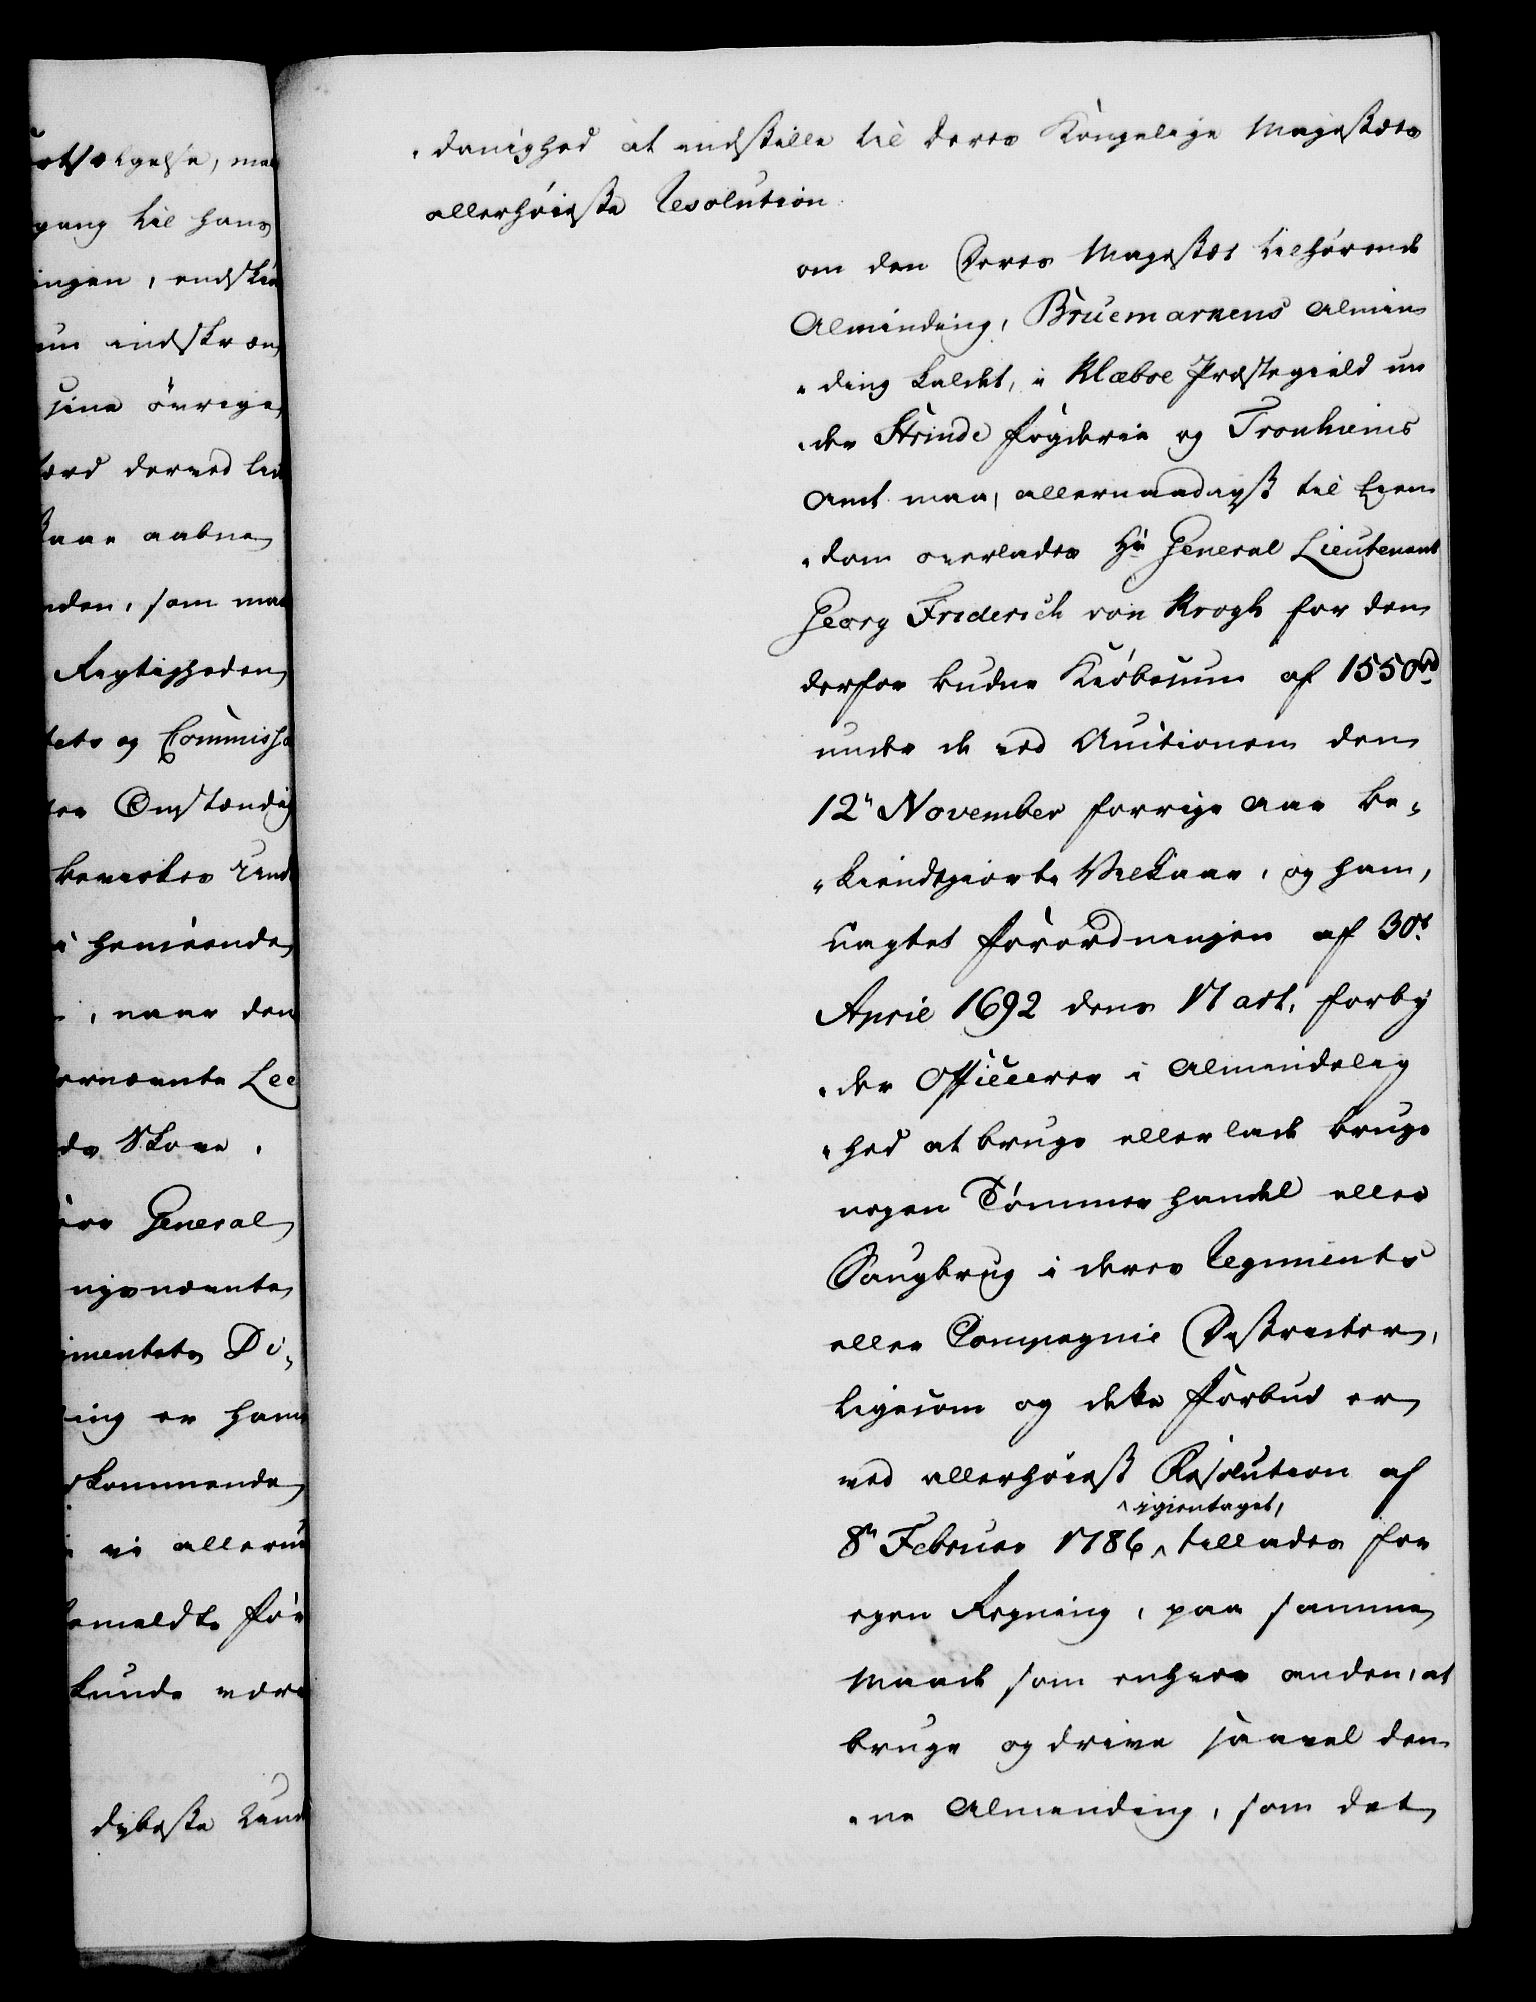 otsælgelse, men
gang til hans
ingen, endskiø
um indskræn
sine øvrige
værd derved lid
staae aabne
nden, som maa
Rigtigheden
tets og Commissa
ter Omstændig
bevirkes und
i henseende
, naar den
ornævnte Lee
ds Skove.
ior General
ngivnævnte
imentets Di-
ing er ham
rkommende
vi allerun
omeldte for
kunde være
dybeste Und
danighed at indstille til Deres Kongelige Majestæts
allerhøieste Resolution
om den Deres Majestæt tilhørende
Alminding, Bruemarkens Almin
ding kaldet, i Klæboe Præstegield un
der Strinde Fogderie og Tronhiems
Amt maa, allernaadigst til Eien
dom overlades Hr General Lieutenant
Georg Friderich von Krogh for den
derfor budne Kiøbesum af 1550 rd
under de ved Auctionen den
12te November forrige Aar be-
kiendtgiorte Vilkaar, og ham,
uagtet Forordningen af 30te
April 1692 dens 17 art. forby
der Officerer i Almindelig
hed at bruge eller lade bruge
nogen Tømmerhandel eller
Saugbrug i deres Regiments
eller Compagnie Districter,
ligesom og dette Forbud er
ved allerhøiest Resolution af
igientaget,
8de Februar 1786, tillades for
egen Regning, paa samme
Maade som enhver anden, at
bruge og drive saavel den
ne Alminding, som det